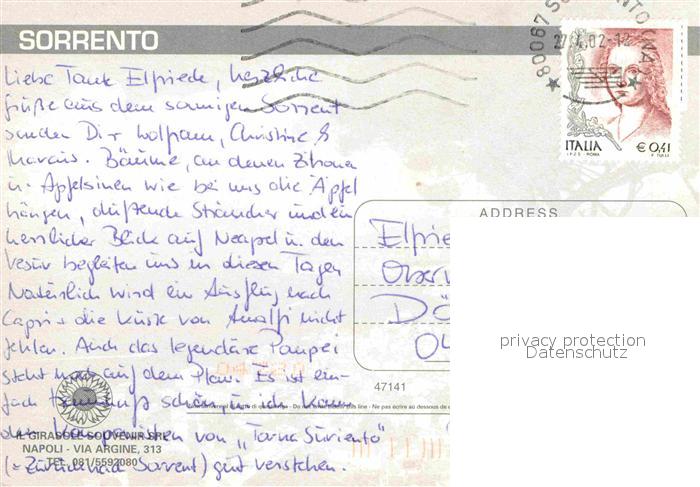 SORRENTO
80067 SORRENTO (NA)
27.4.02-12
ITALIA
I.P.Z.S. - ROMA
€ 0,41
F. TULLI
Liebe Tante Elfriede, herzliche
Grüße aus dem sonnigen Sorrent
senden Dir Wolfram, Christine &
Marcus. Bäume, an denen Zitronen
u. Apfelsinen wie bei uns die Äpfel
hängen, duftende Sträucher und ein
herrlicher Blick auf Neapel u. den
Vesuv begleiten uns in diesen Tagen
Natürlich wird ein Ausflug nach
Capri + die Küste von Amalfi nicht
fehlen. Auch das legendäre Pompei
steht noch auf dem Plan. Es ist ein-
fach schön, u. ich kann
den Komponisten von „Torna Suriento“
(= Zurück nach Sorrent) gut verstehen.
ADDRESS
Elfrie
Ober
Dö
04
47141
IL GIRASOLE SOUVENIR SRL
NAPOLI - VIA ARGINE, 313
TEL. 081/5592080
privacy protection
Datenschutz